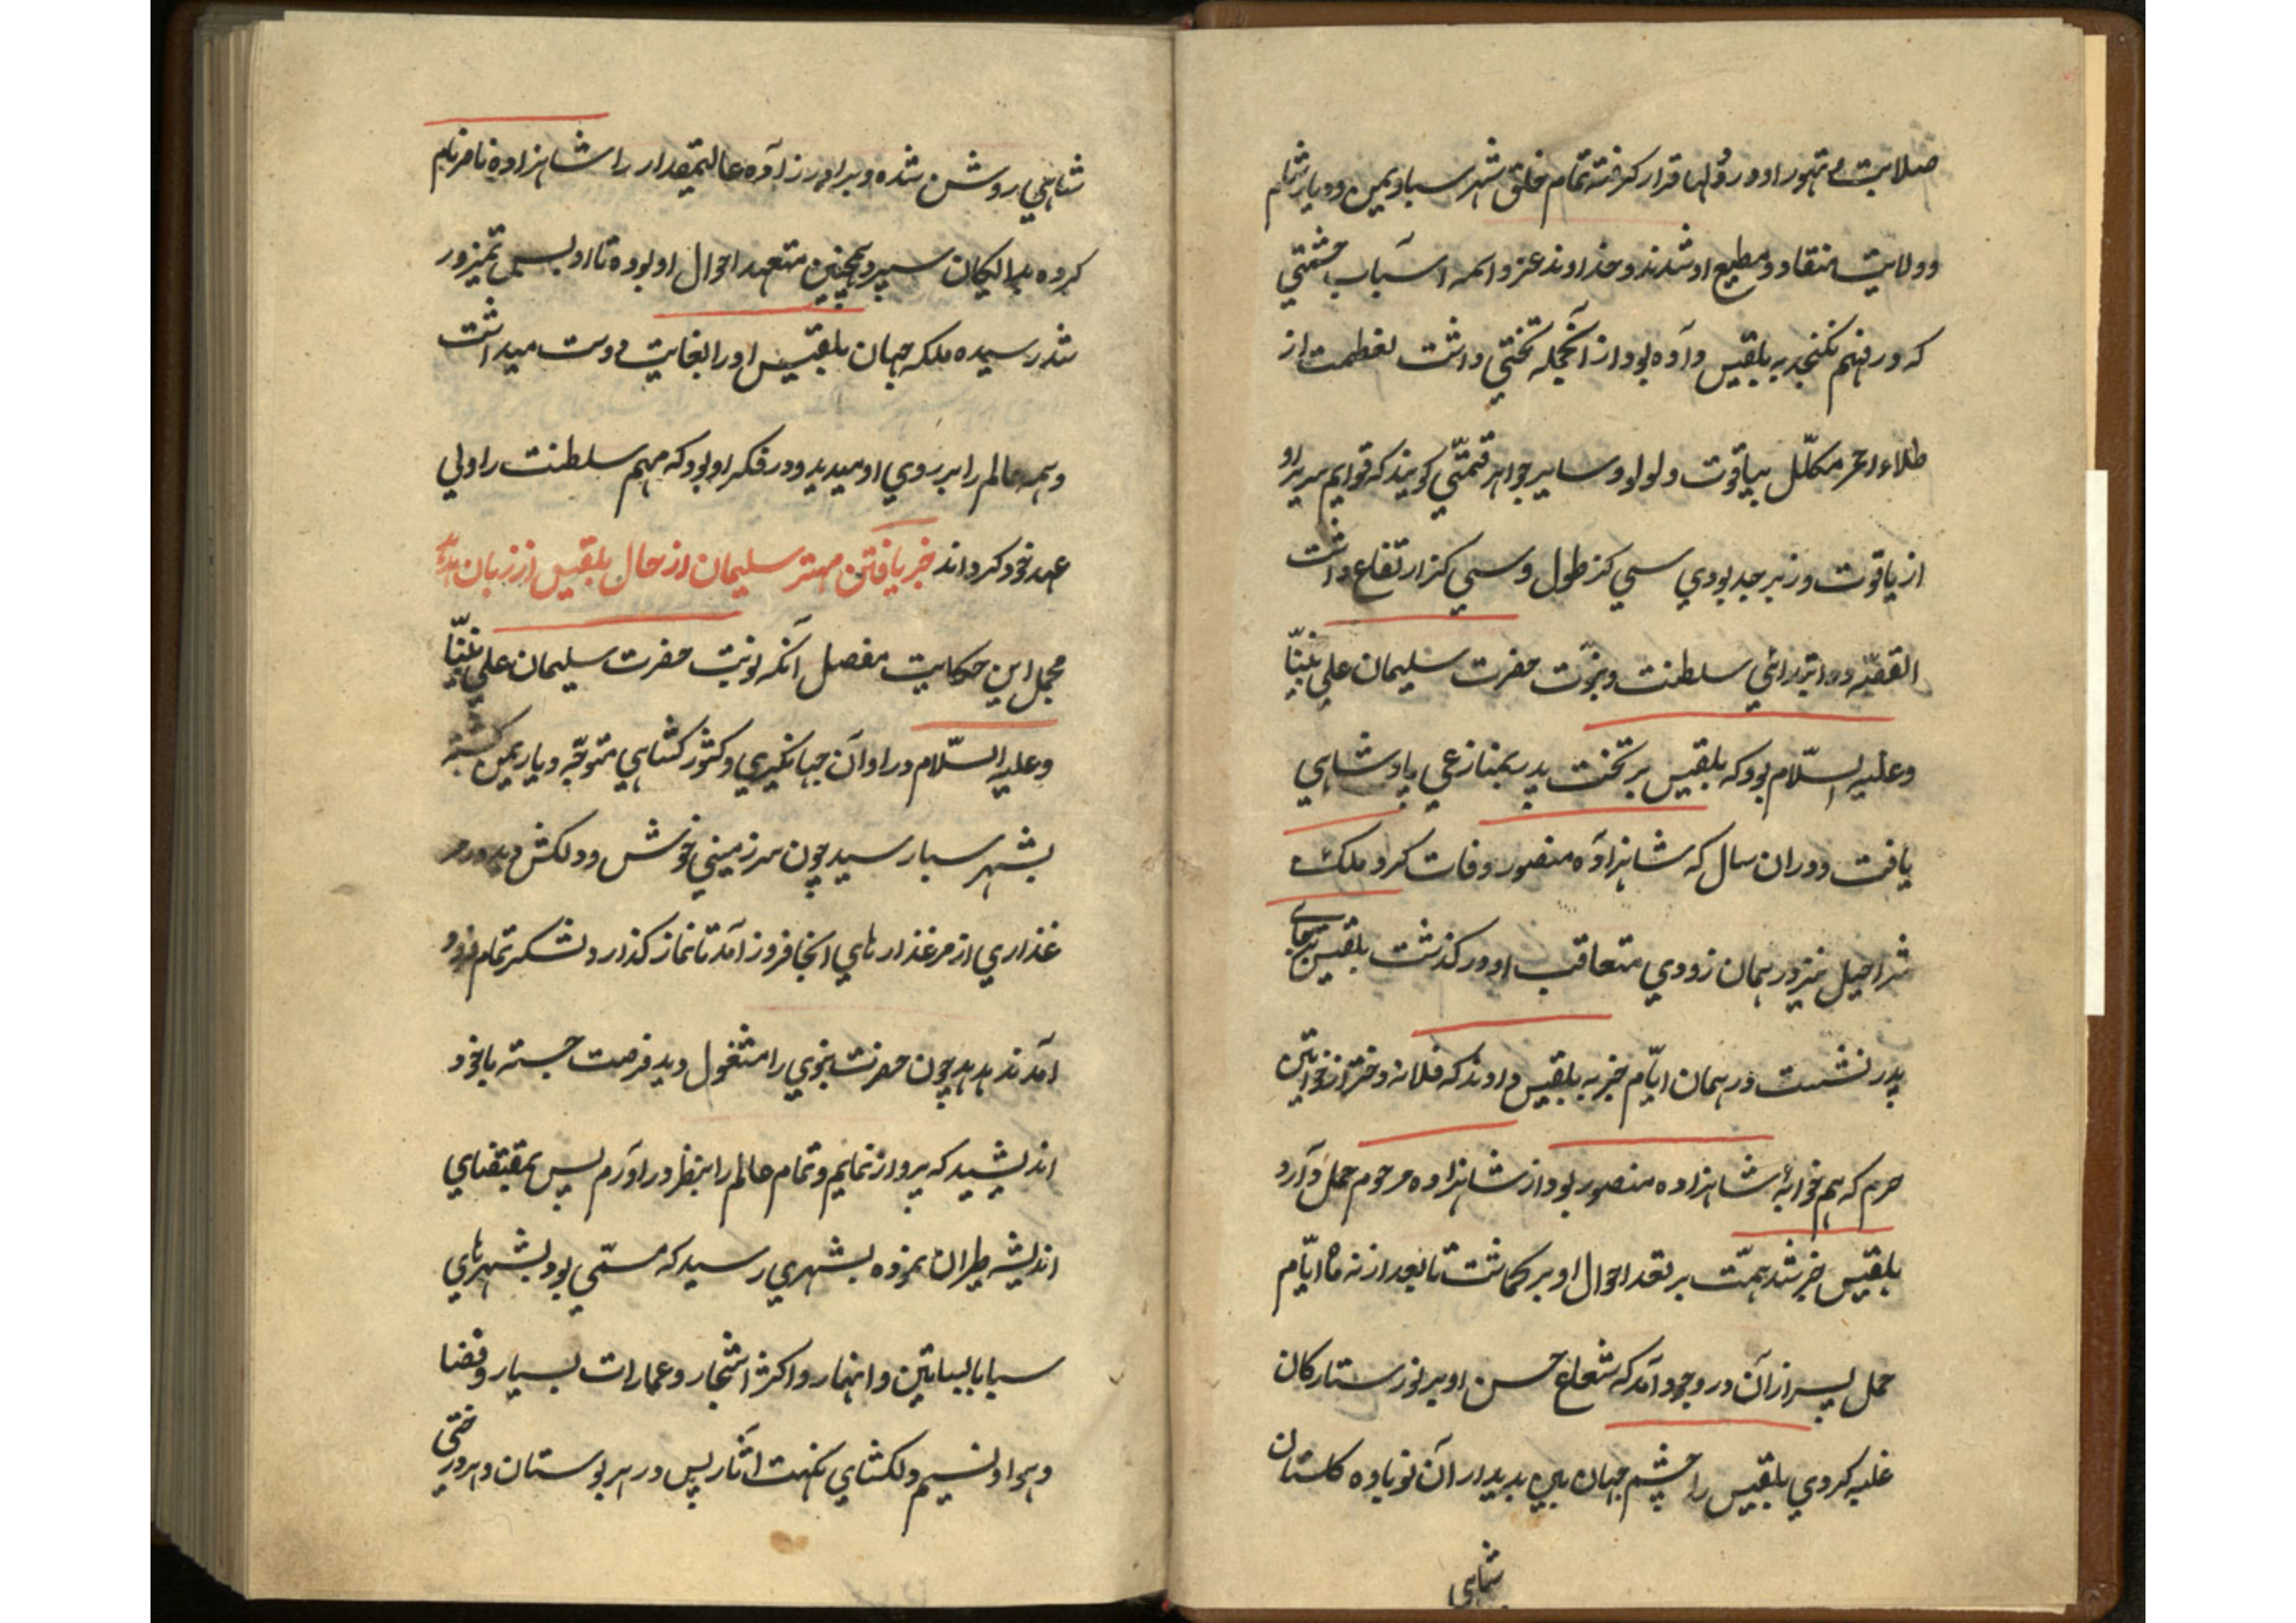 صلابت و تهور او در دلها قرار گرفته تمام خلق شهر سبا و یمن و دیار شام
و ولایت منقاد و مطیع او شدند و خداوند عز و اسمه اسباب حشمتی
که در فهم نکنجد به بلقیس داده بود از انجمله تختی داشت بعظمت از
طلاء احمر مکلّل بیاقوت و لولو و سایر جواهر قیمتی کویند که قوایم سریر او
از یاقوت و زبرجد بودی سی کز طول و سی کز ارتفاع داشت
القصّه در ابتدرائی سلطنت و نبوّت حضرت سلیمان علی نبیّنا
و علیه السّلام بود که بلقیس بر تخت پدر بمنازعی پادشاهی
یافت و دران سال که شاهزاده منصور وفات کرد و ملک
شراحیل نیز در همان زودی متعاقب او درکذشت بلقیس بجای
پدر نشست در همان ایّام خبر به بلقیس دادند که فلانه دختر از خواتین
حرم که هم خوابهٔ شاهزاده منصور بود از شاهزاده مرحوم حمل دارد
بلقیس خبر شد همّت بر تفقد احوال او بر کماشت تا بعد از نه ماه ایّام
حمل پسر از آن در وجود آمد که شعاع حسن او بر نور ستارکان
غلبه کردی بلقیس را چشم جهان بین بدیدار آن نوباوه کلستان
شاهی
شاهی روشن شده و برادر زاده عالیمقدار را شاهزاده نام
کرده بدایکان سپرد همچنین متعهد احوال او بوده تا او بسن تمیز در
شد رسیده ملکه جهان بلقیس او را بغایت دوست میداشت
و همه عالم را بر روی او میدید و در فکر او بود که مهم سلطنت را ولی
عهد خود کرداند خبر یافتن مهتر سلیمان از حال بلقیس از زبان هدهد
مجمل این حکایت مفصل آنکه نوبت حضرت سلیمان علی نبیّنا
و علیه السّلام در اوان جهانکیری و کشور کشاهی متوجّه دیار یمن کشته
بشهر سبا رسید چون سرزمینی خوش و دلکش دید در مر
غذاری از مرغذارهای انجا فروز آمد تا نماز کذارد و لشکر تمام فرود
آمدند هدهد چون حضرت نبوی را مشغول دید فرصت جسته با خود
اندیشید که پرواز نمایم و تمام عالم را بنظر در اورم پس بمقتضای
اندیشه طیران نموده بشهری رسید که مسمّی بود بشهرهای
سبا با بساتین و انهار و اکثر اشجار و عمارات بسیار و فضا
و هوا و نسیم دلکشای نکهت اثار پس در هر بوستان و هر درختی